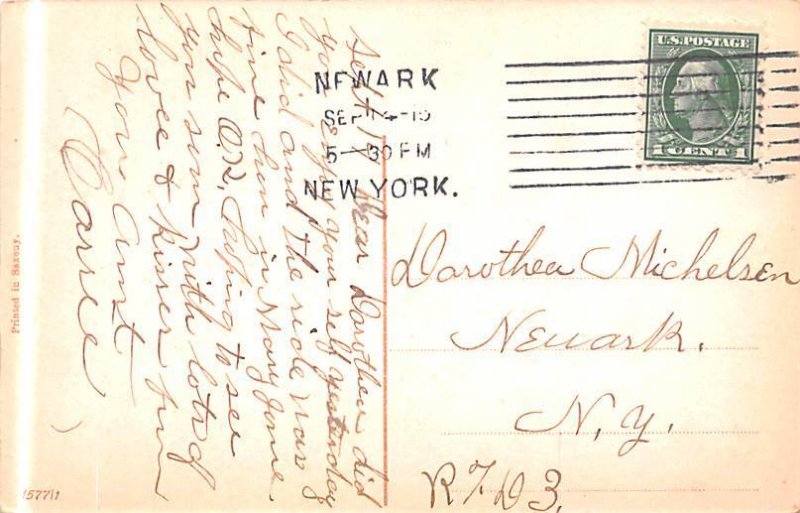 NEWARK
SEP 14-15
5-30 PM
NEW YORK.
U.S. POSTAGE
1 CENT 1
Dear Dorothea did
you enjoy your self yesterday
I did and the ride was
fine hen in Mary Jane.
hope O.K. hoping to see
you soon with lots of
love & kisses from
Your Aunt
Carrie
Dorothea Michelsen
Newark.
N.Y.
R F D 3.
Printed in Saxony.
15771